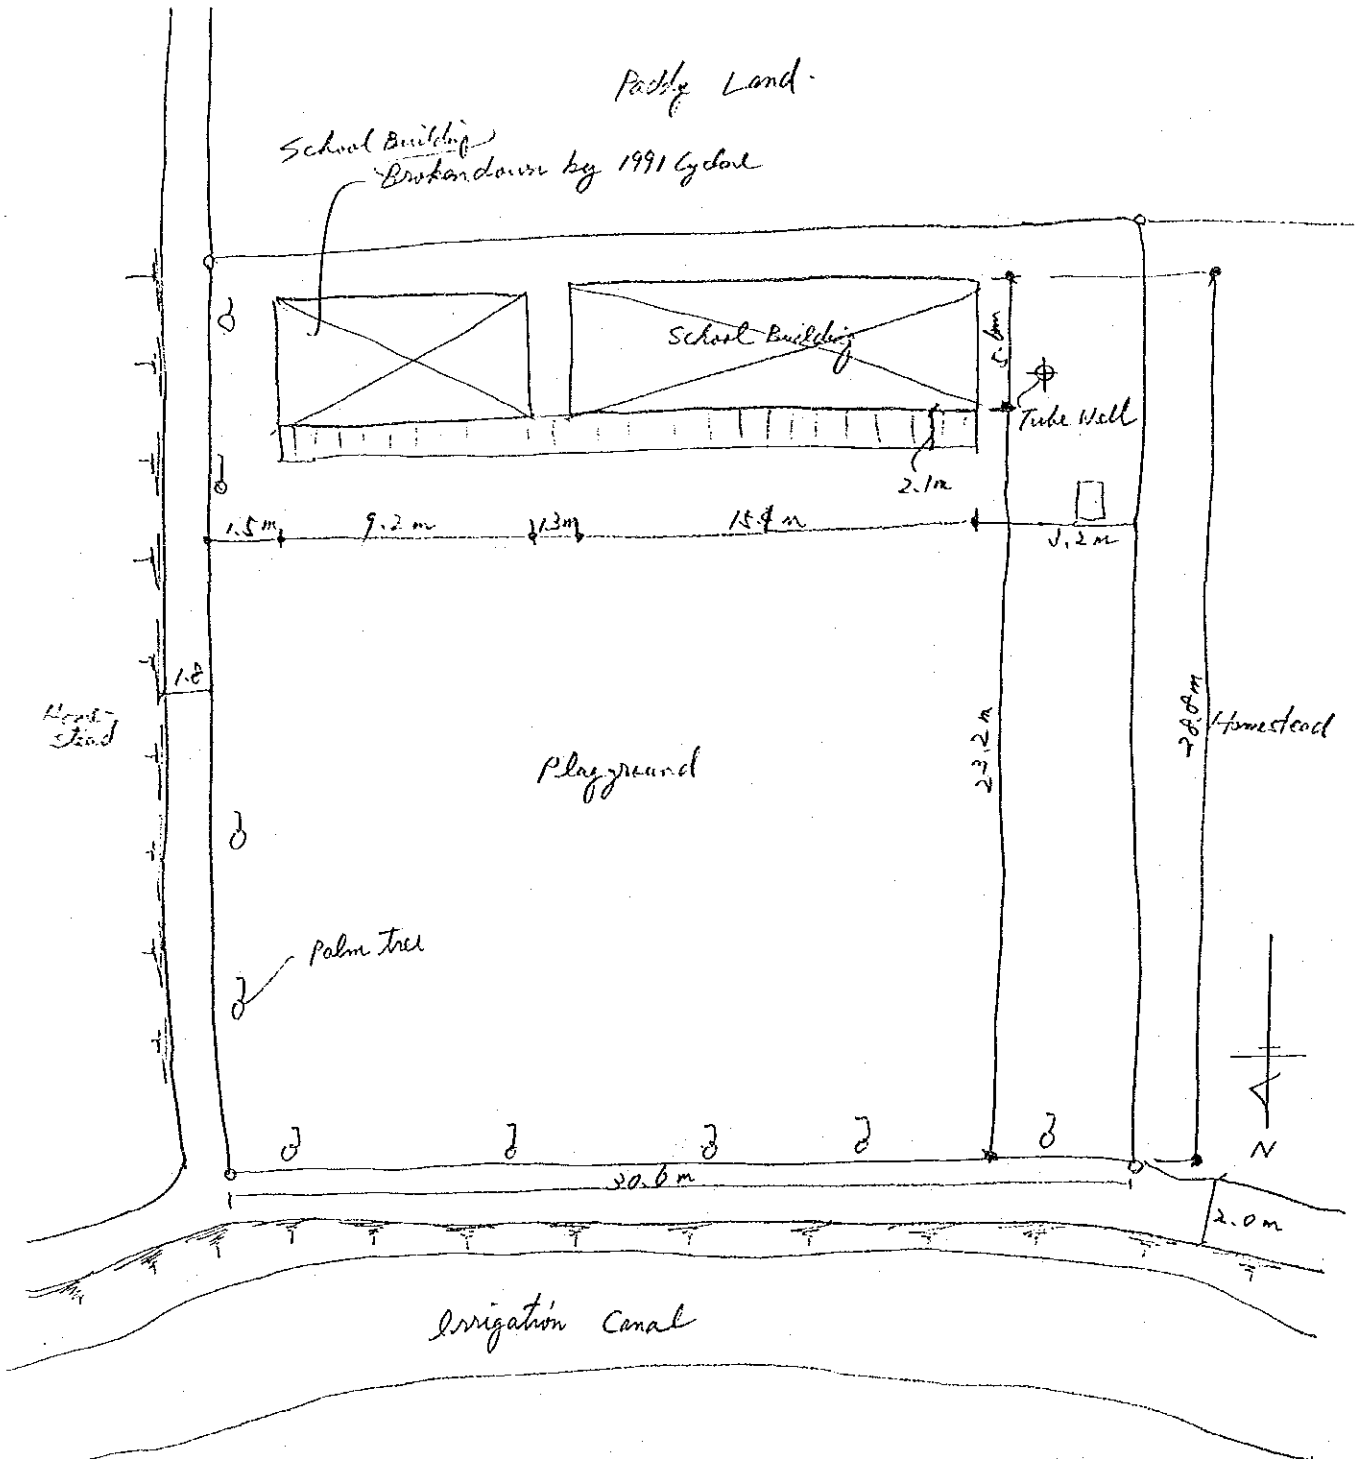 Paddy Land.
School Building
Broken down by 1991 Cyclone
School Building
5.6m
Tube Well
2.1m
1.5m
9.2m
1.3m
15.4m
3.2m
1.8
Home-
stead
Playground
23.2m
28.8m
Homestead
Palm tree
N
30.6m
2.0m
Irrigation Canal